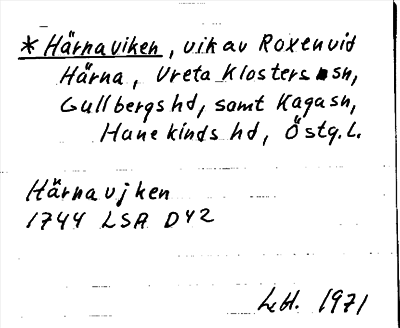 * Härnaviken, vik av Roxen vid
Härna, Vreta Klosters sn,
Gullbergs hd, samt Kaga sn,
Hanekinds hd, Östg.l.
Härnavjken
1744 LSA D42
L.H. 1971